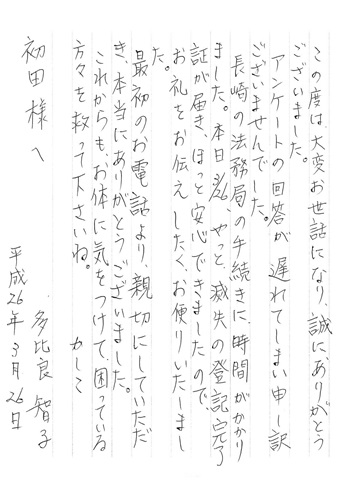 この度は、大変お世話になり、誠に、ありがとう
ございました。
アンケートの回答が遅れてしまい申し訳
ございませんでした。
長崎の法務局の手続きに、時間がかかり
ました。本日3/26、やっと、滅失の登記完了
証が届き、ほっと安心できましたので、
お礼をお伝えしたく、お便りいたしまし
た。
最初のお電話より、親切にしていただ
き、本当にありがとうございました。
これからも、お体に気をつけて、困っている
方々を救って下さいね。
かしこ
多比良智子
平成26年3月26日
初田様へ